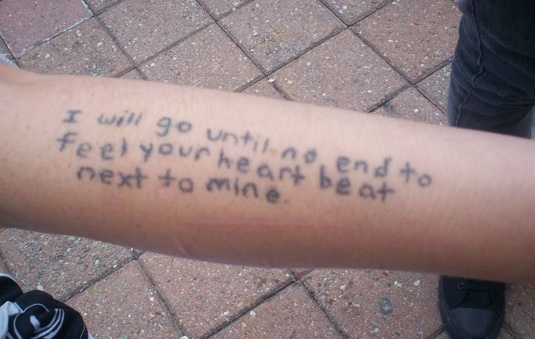 I will go until no end to
feel your heart beat
next to mine.